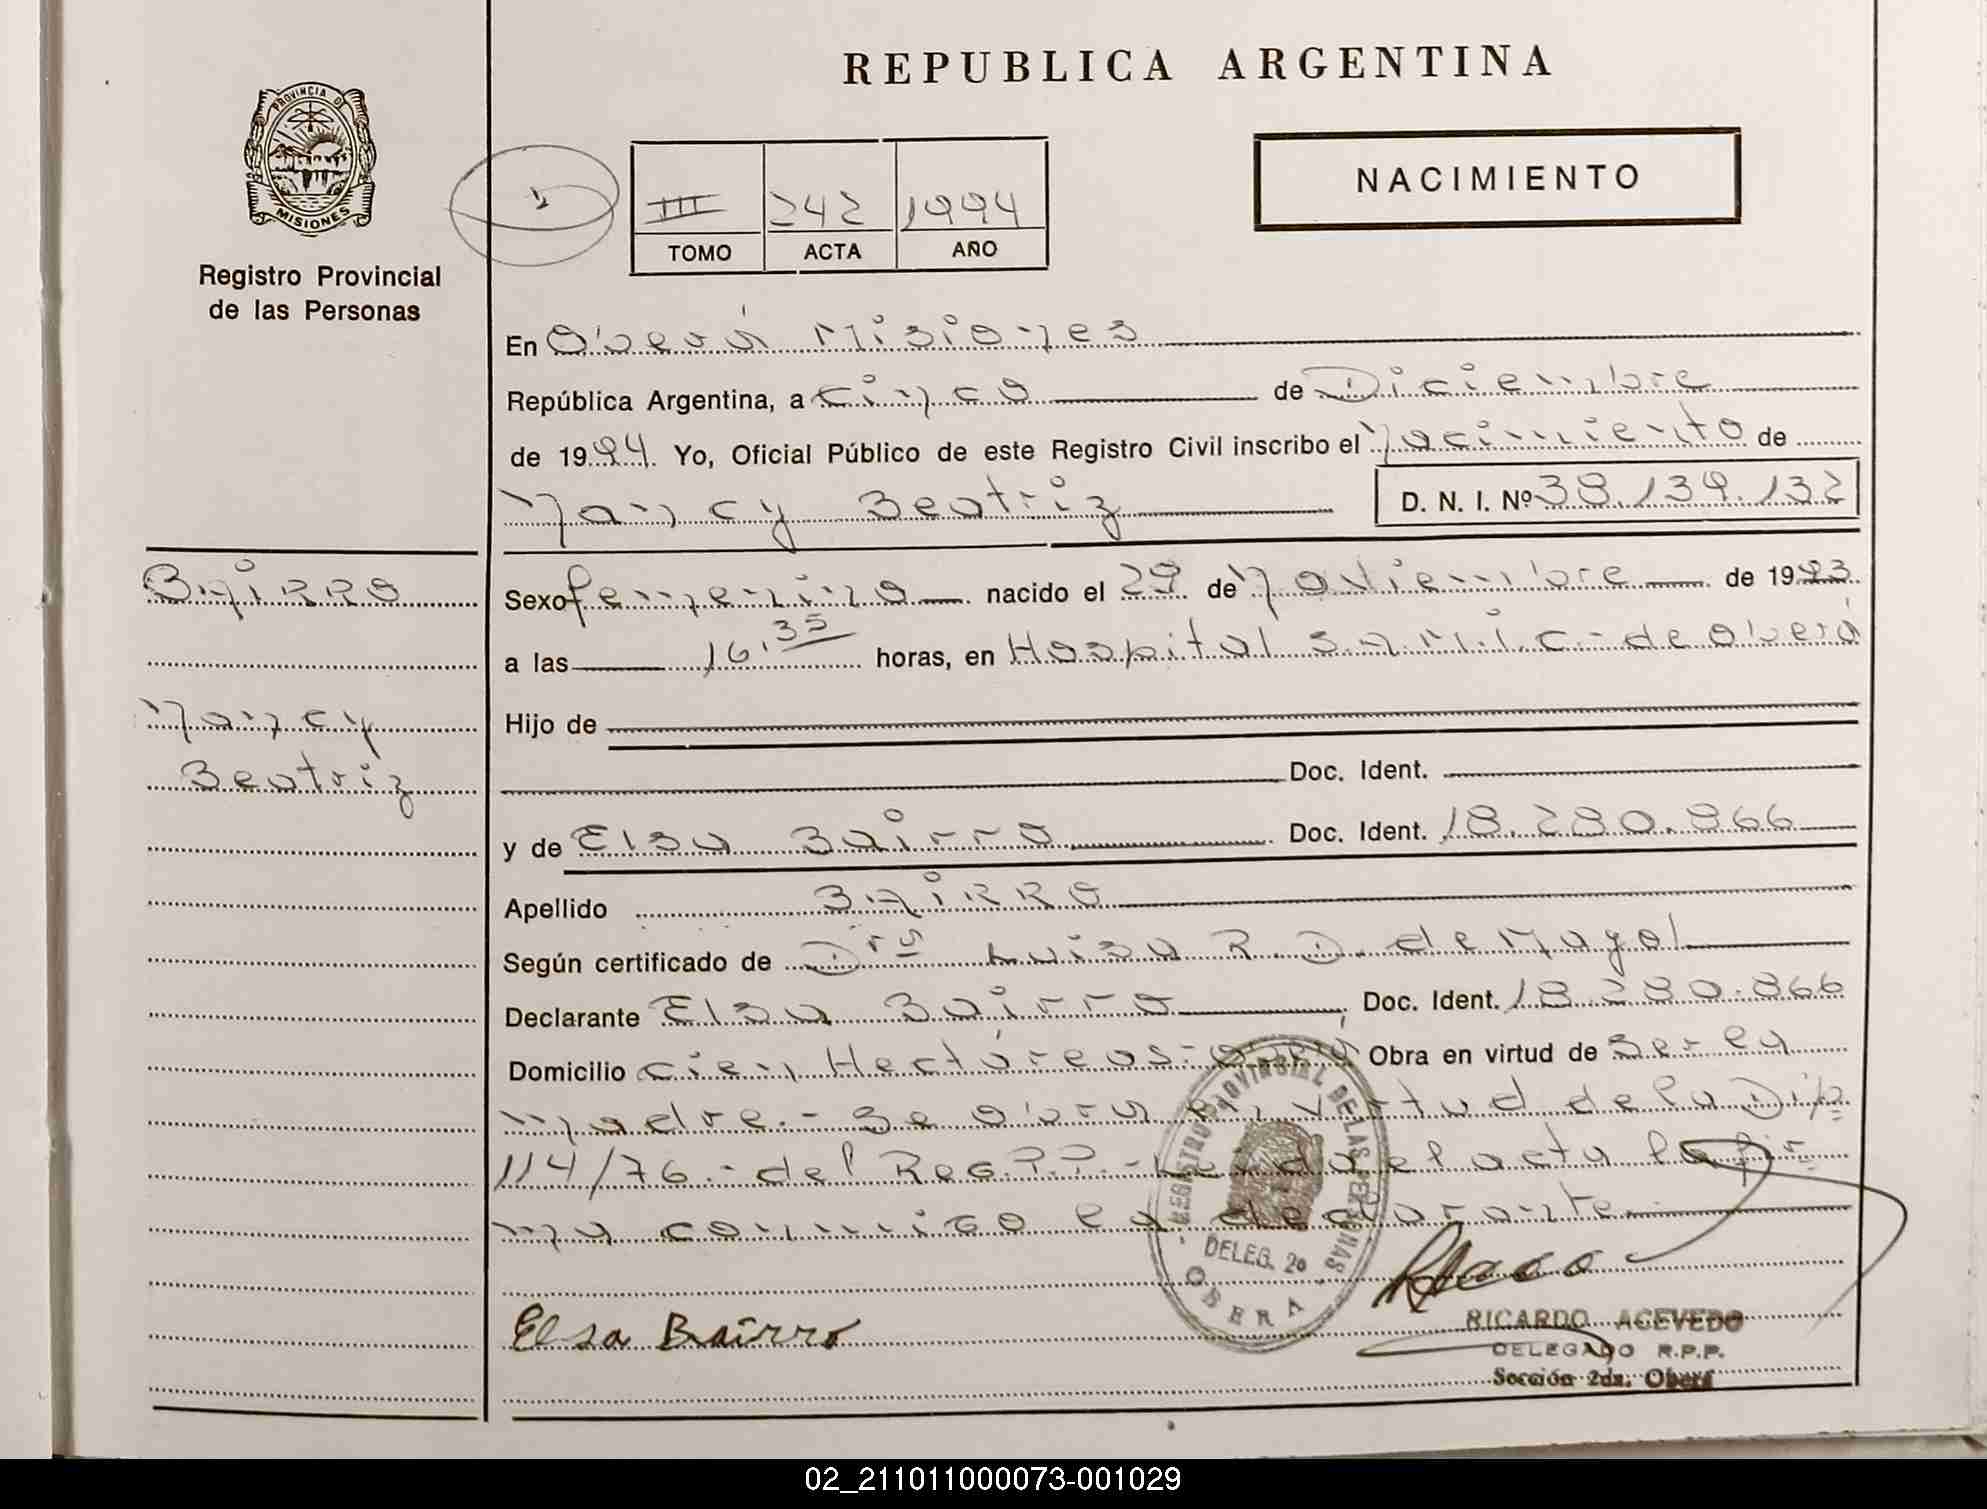 REPUBLICA ARGENTINA
PROVINCIA DE
MISIONES
Registro Provincial
de las Personas
NACIMIENTO
III 242 1994
TOMO ACTA AÑO
En Oberá Misiones
República Argentina, a cinco de Diciembre
de 1994. Yo, Oficial Público de este Registro Civil inscribo el nacimiento de
Nancy Beatriz D. N. I. Nº 38.139.132
BAiRRO
Sexo femenino nacido el 29 de Noviembre de 1993
a las 16,35 horas, en Hospital S.A.M.I.C. - de Oberá
Nancy
Beatriz
Hijo de
Doc. Ident.
y de Elsa Bairro Doc. Ident. 18.280.866
Apellido BAiRRO
Según certificado de Dra Luisa R. D. de Mayol
Declarante Elsa Bairro Doc. Ident. 18.280.866
Domicilio Cien Hectáreas - Oberá Obra en virtud de Ser la
madre. - Se obra en virtud de la Dip
114/76. - del Reg. P.P. - Leída el acta la fir
ma conmigo la declarante
REGISTRO PROVINCIAL DE LAS PERSONAS
DELEG. 2º
OBERA
Elsa Bairro
RICARDO ACEVEDO
DELEGADO R.P.P.
Sección 2da. Oberá
02_211011000073-001029